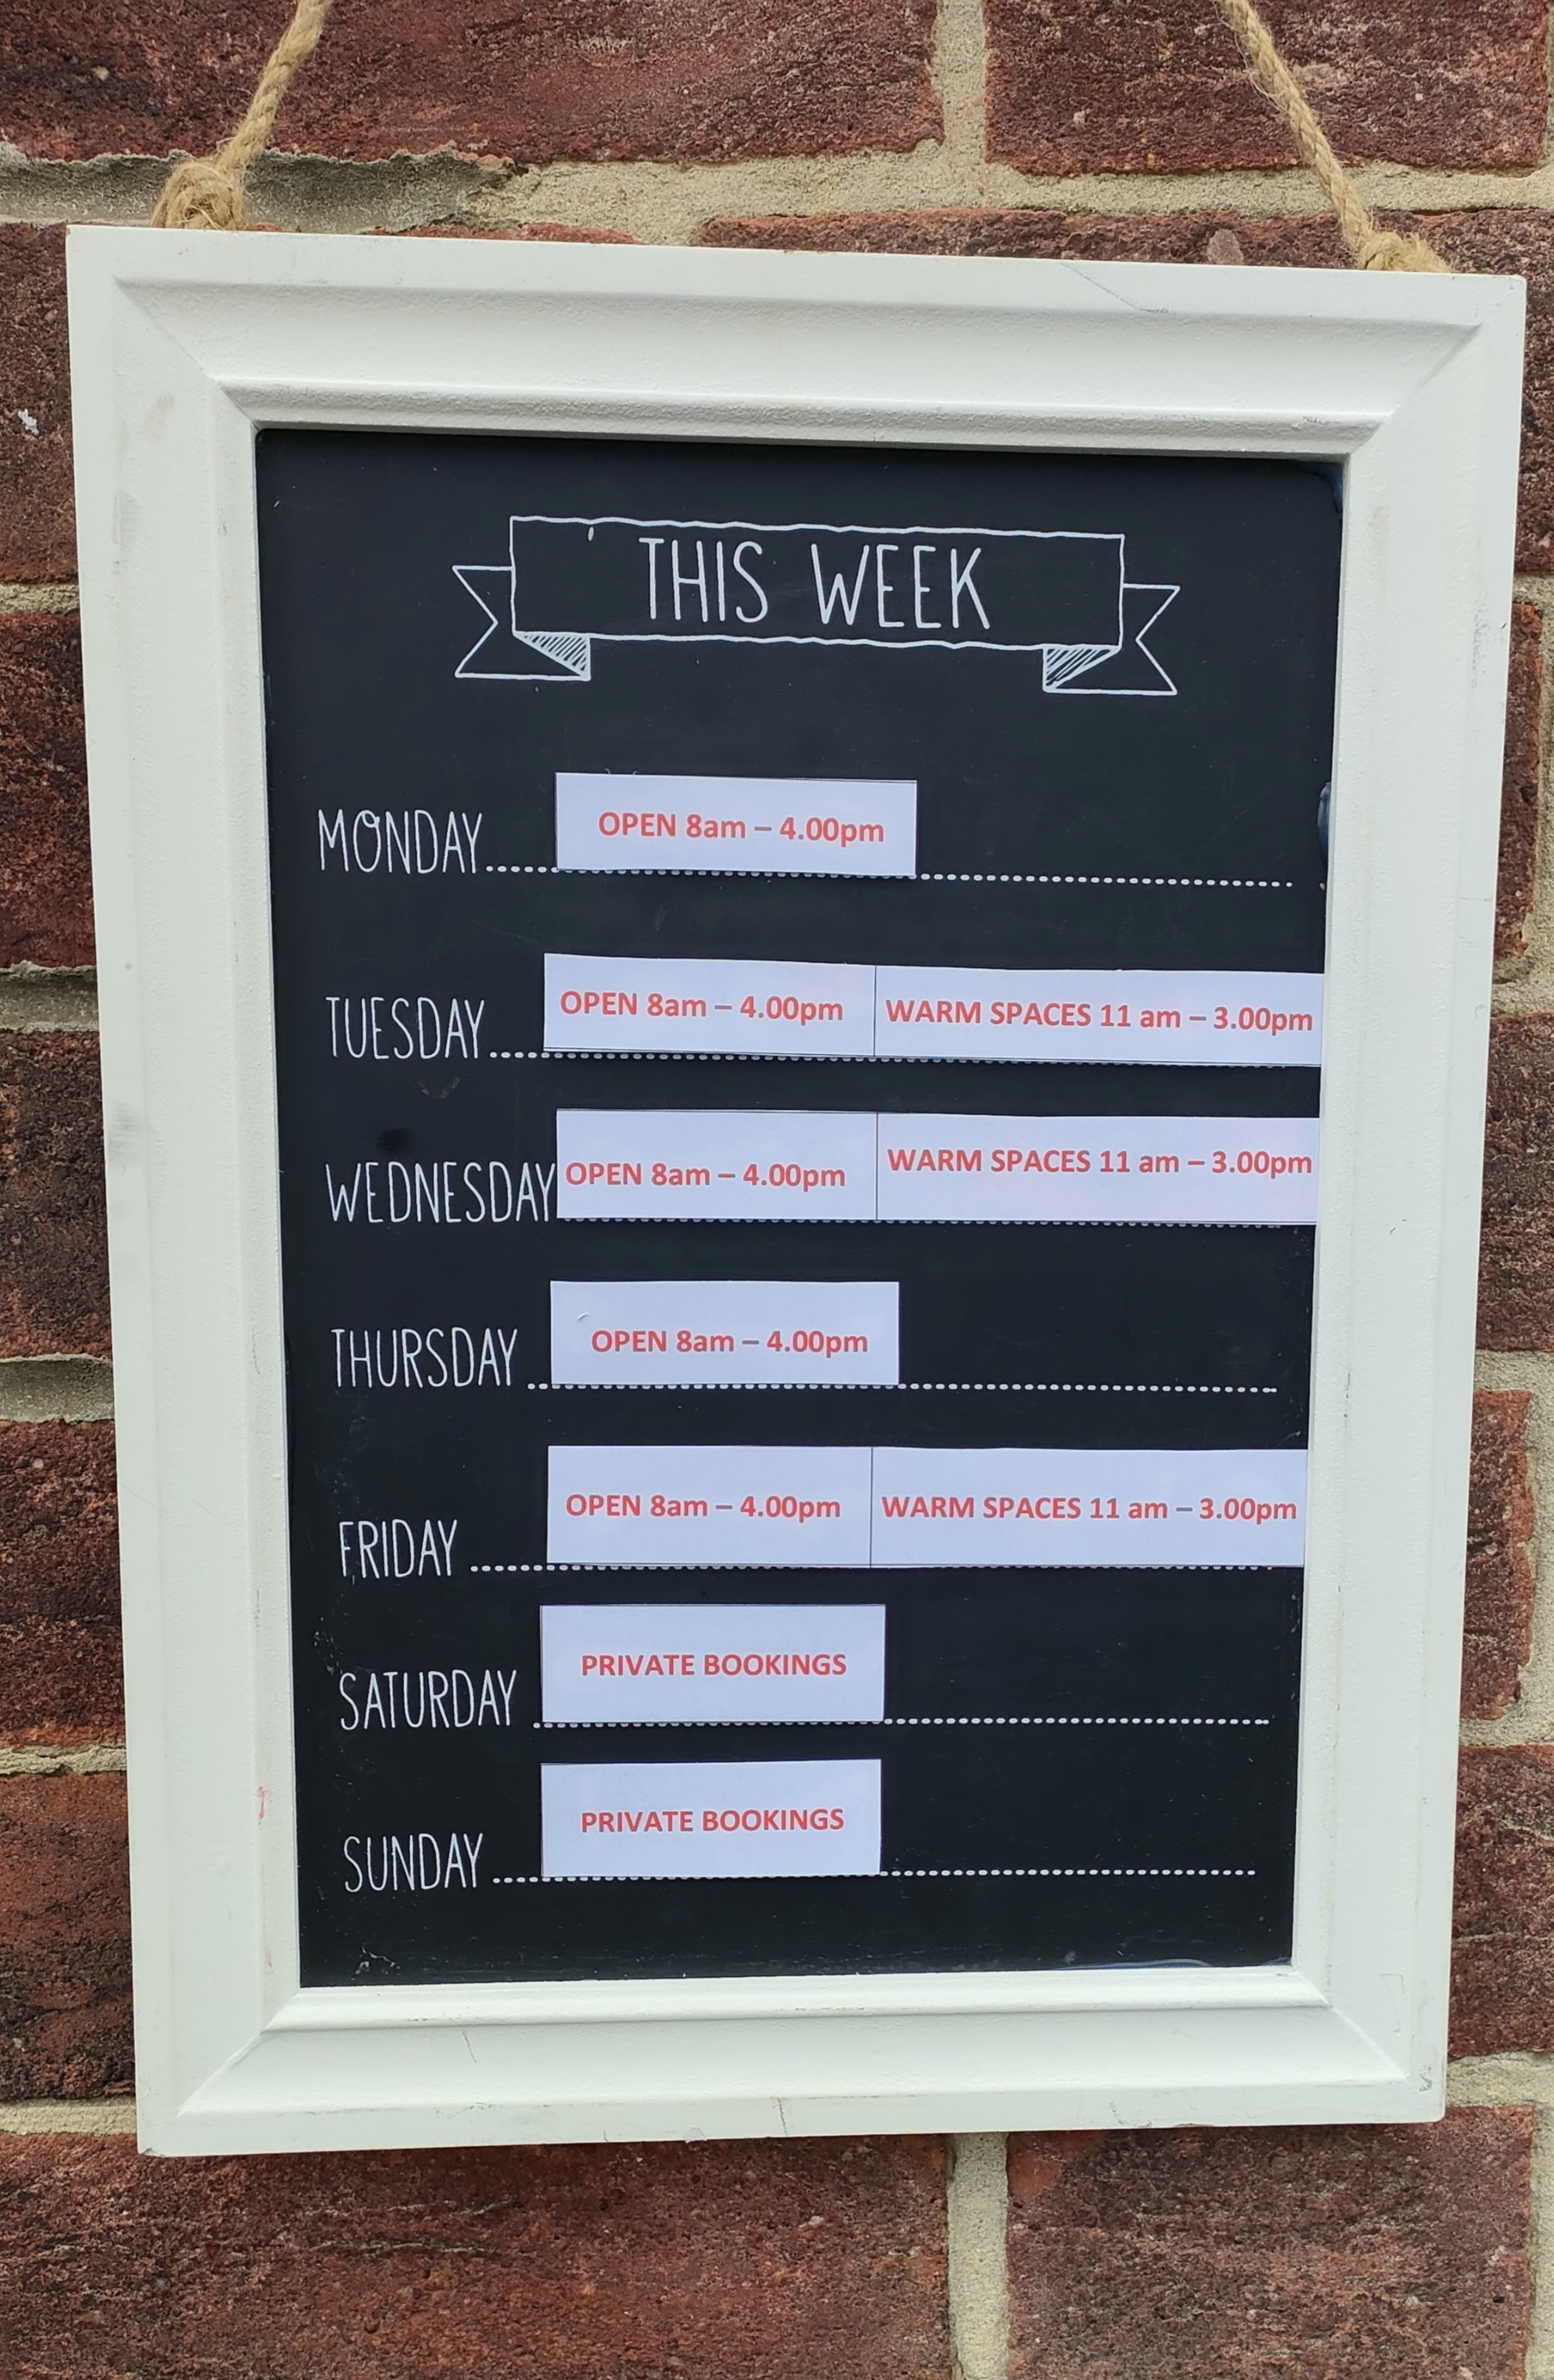 THIS WEEK
MONDAY OPEN 8am – 4.00pm
TUESDAY OPEN 8am – 4.00pm WARM SPACES 11 am – 3.00pm
WEDNESDAY OPEN 8am – 4.00pm WARM SPACES 11 am – 3.00pm
THURSDAY OPEN 8am – 4.00pm
FRIDAY OPEN 8am – 4.00pm WARM SPACES 11 am – 3.00pm
SATURDAY PRIVATE BOOKINGS
SUNDAY PRIVATE BOOKINGS